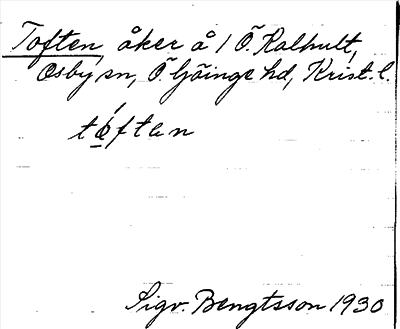 Toften, åker å 1 Ö. Kalhult,
Osby sn, Ö. Göinge hd, Krist. l.
tóftan
Sigv. Bengtsson 1930